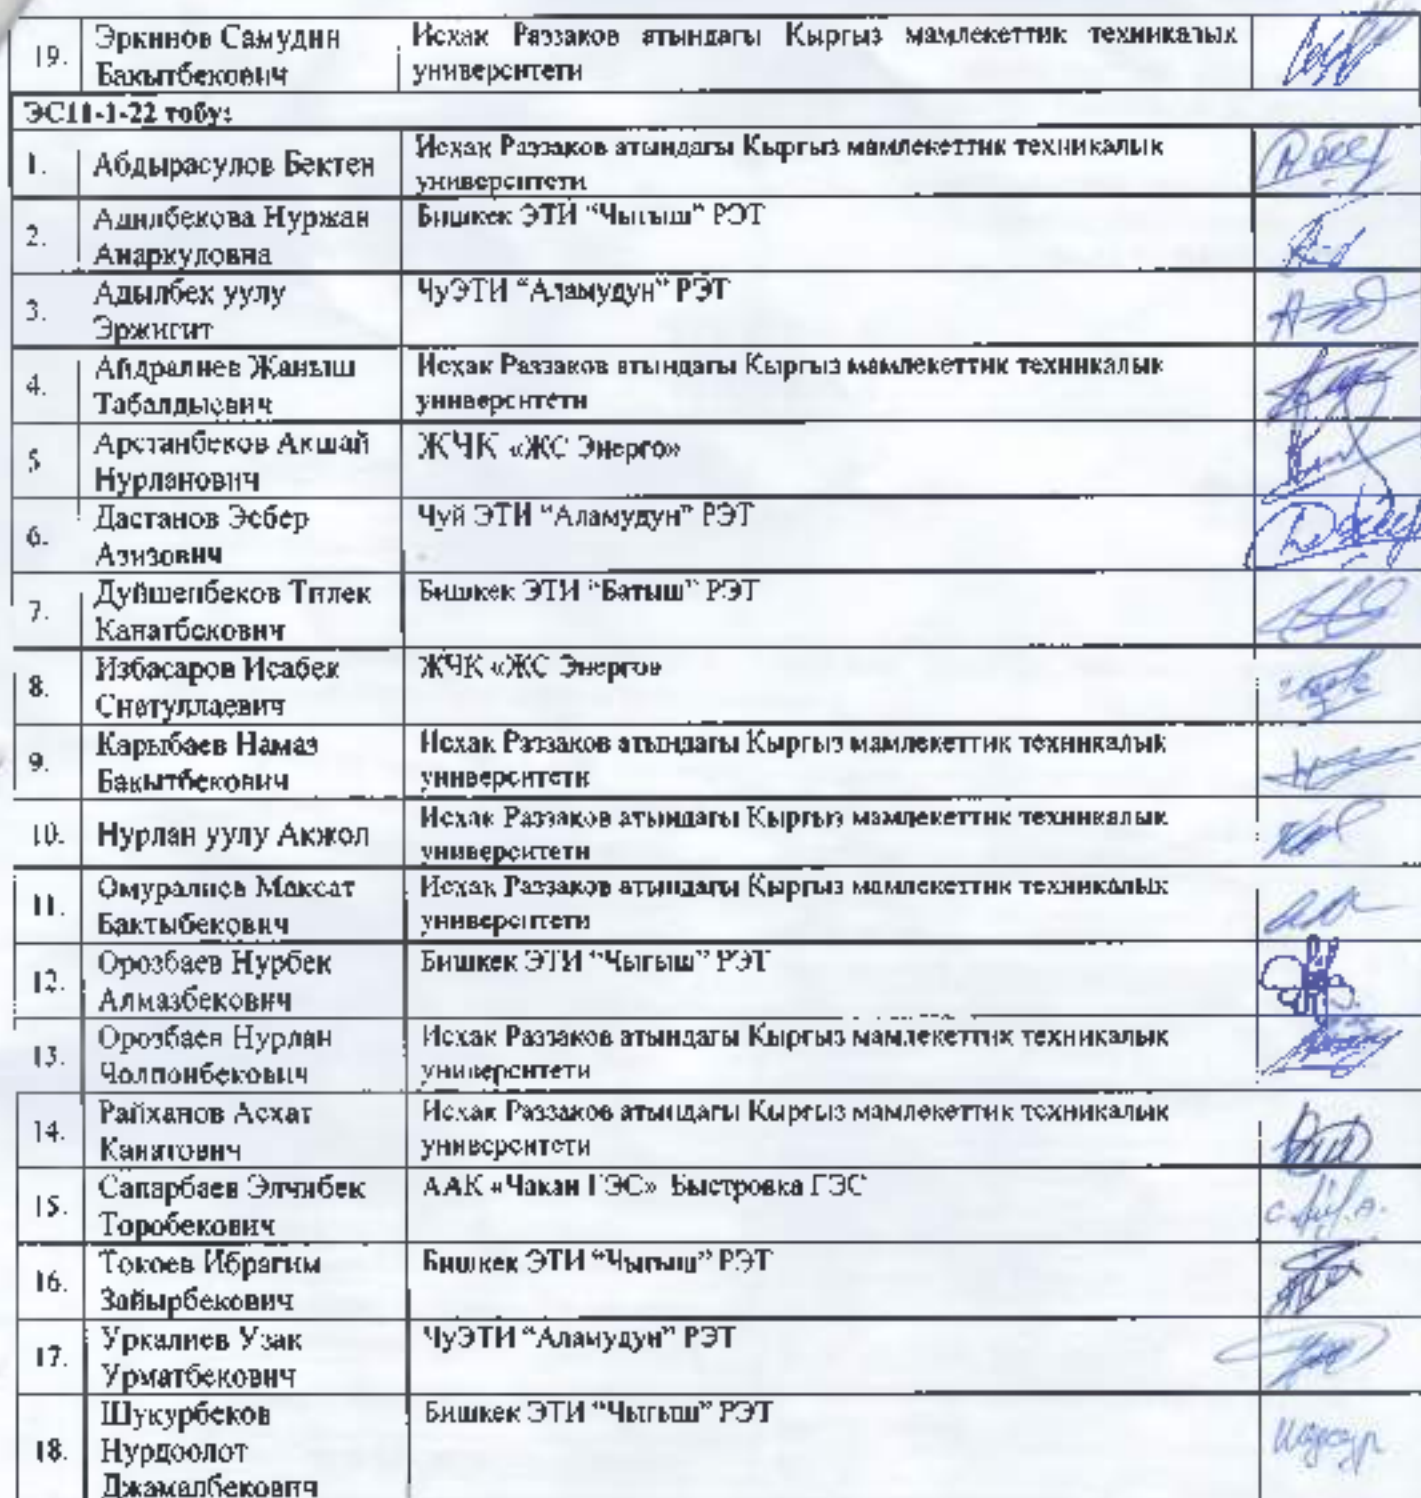 19. Эркинов Самудин Бакытбекович Исхак Раззаков атындагы Кыргыз мамлекеттик техникалык университети
ЭСП-1-22 тобу:
1. Абдырасулов Бектен Исхак Раззаков атындагы Кыргыз мамлекеттик техникалык университети
2. Адилбекова Нуржан Анаркуловна Бишкек ЭТИ “Чыгыш” РЭТ
3. Адылбек уулу Эржигит ЧуЭТИ “Аламудун” РЭТ
4. Айдралиев Жаныш Табалдыевич Исхак Раззаков атындагы Кыргыз мамлекеттик техникалык университети
5. Арстанбеков Акшай Нурланович ЖЧК «ЖС Энерго»
6. Дастанов Эсбер Азизович Чуй ЭТИ “Аламудун” РЭТ
7. Дуйшенбеков Тилек Канатбекович Бишкек ЭТИ “Батыш” РЭТ
8. Избасаров Исабек Снетуллаевич ЖЧК «ЖС Энерго»
9. Карыбаев Намаз Бакытбекович Исхак Раззаков атындагы Кыргыз мамлекеттик техникалык университети
10. Нурлан уулу Акжол Исхак Раззаков атындагы Кыргыз мамлекеттик техникалык университети
11. Омуралиев Максат Бактыбекович Исхак Раззаков атындагы Кыргыз мамлекеттик техникалык университети
12. Орозбаев Нурбек Алмазбекович Бишкек ЭТИ “Чыгыш” РЭТ
13. Орозбаев Нурлан Чолпонбекович Исхак Раззаков атындагы Кыргыз мамлекеттик техникалык университети
14. Райханов Асхат Канатович Исхак Раззаков атындагы Кыргыз мамлекеттик техникалык университети
15. Сапарбаев Элчибек Торобекович ААК «Чакан ГЭС» Быстровка ГЭС
16. Токоев Ибрагим Зайырбекович Бишкек ЭТИ “Чыгыш” РЭТ
17. Уркалиев Узак Урматбекович ЧуЭТИ “Аламудун” РЭТ
18. Шукурбеков Нурдоолот Джамалбекович Бишкек ЭТИ “Чыгыш” РЭТ